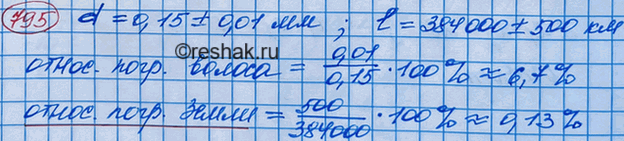 795 d = 0,15 ± 0,01 мм ; l = 384000 ± 500 км
©reshak.ru
относ. погр. волоса = 0,01/0,15 · 100 % ≈ 6,7 %
относ. погр. Земли = 500/384000 · 100 % ≈ 0,13 %